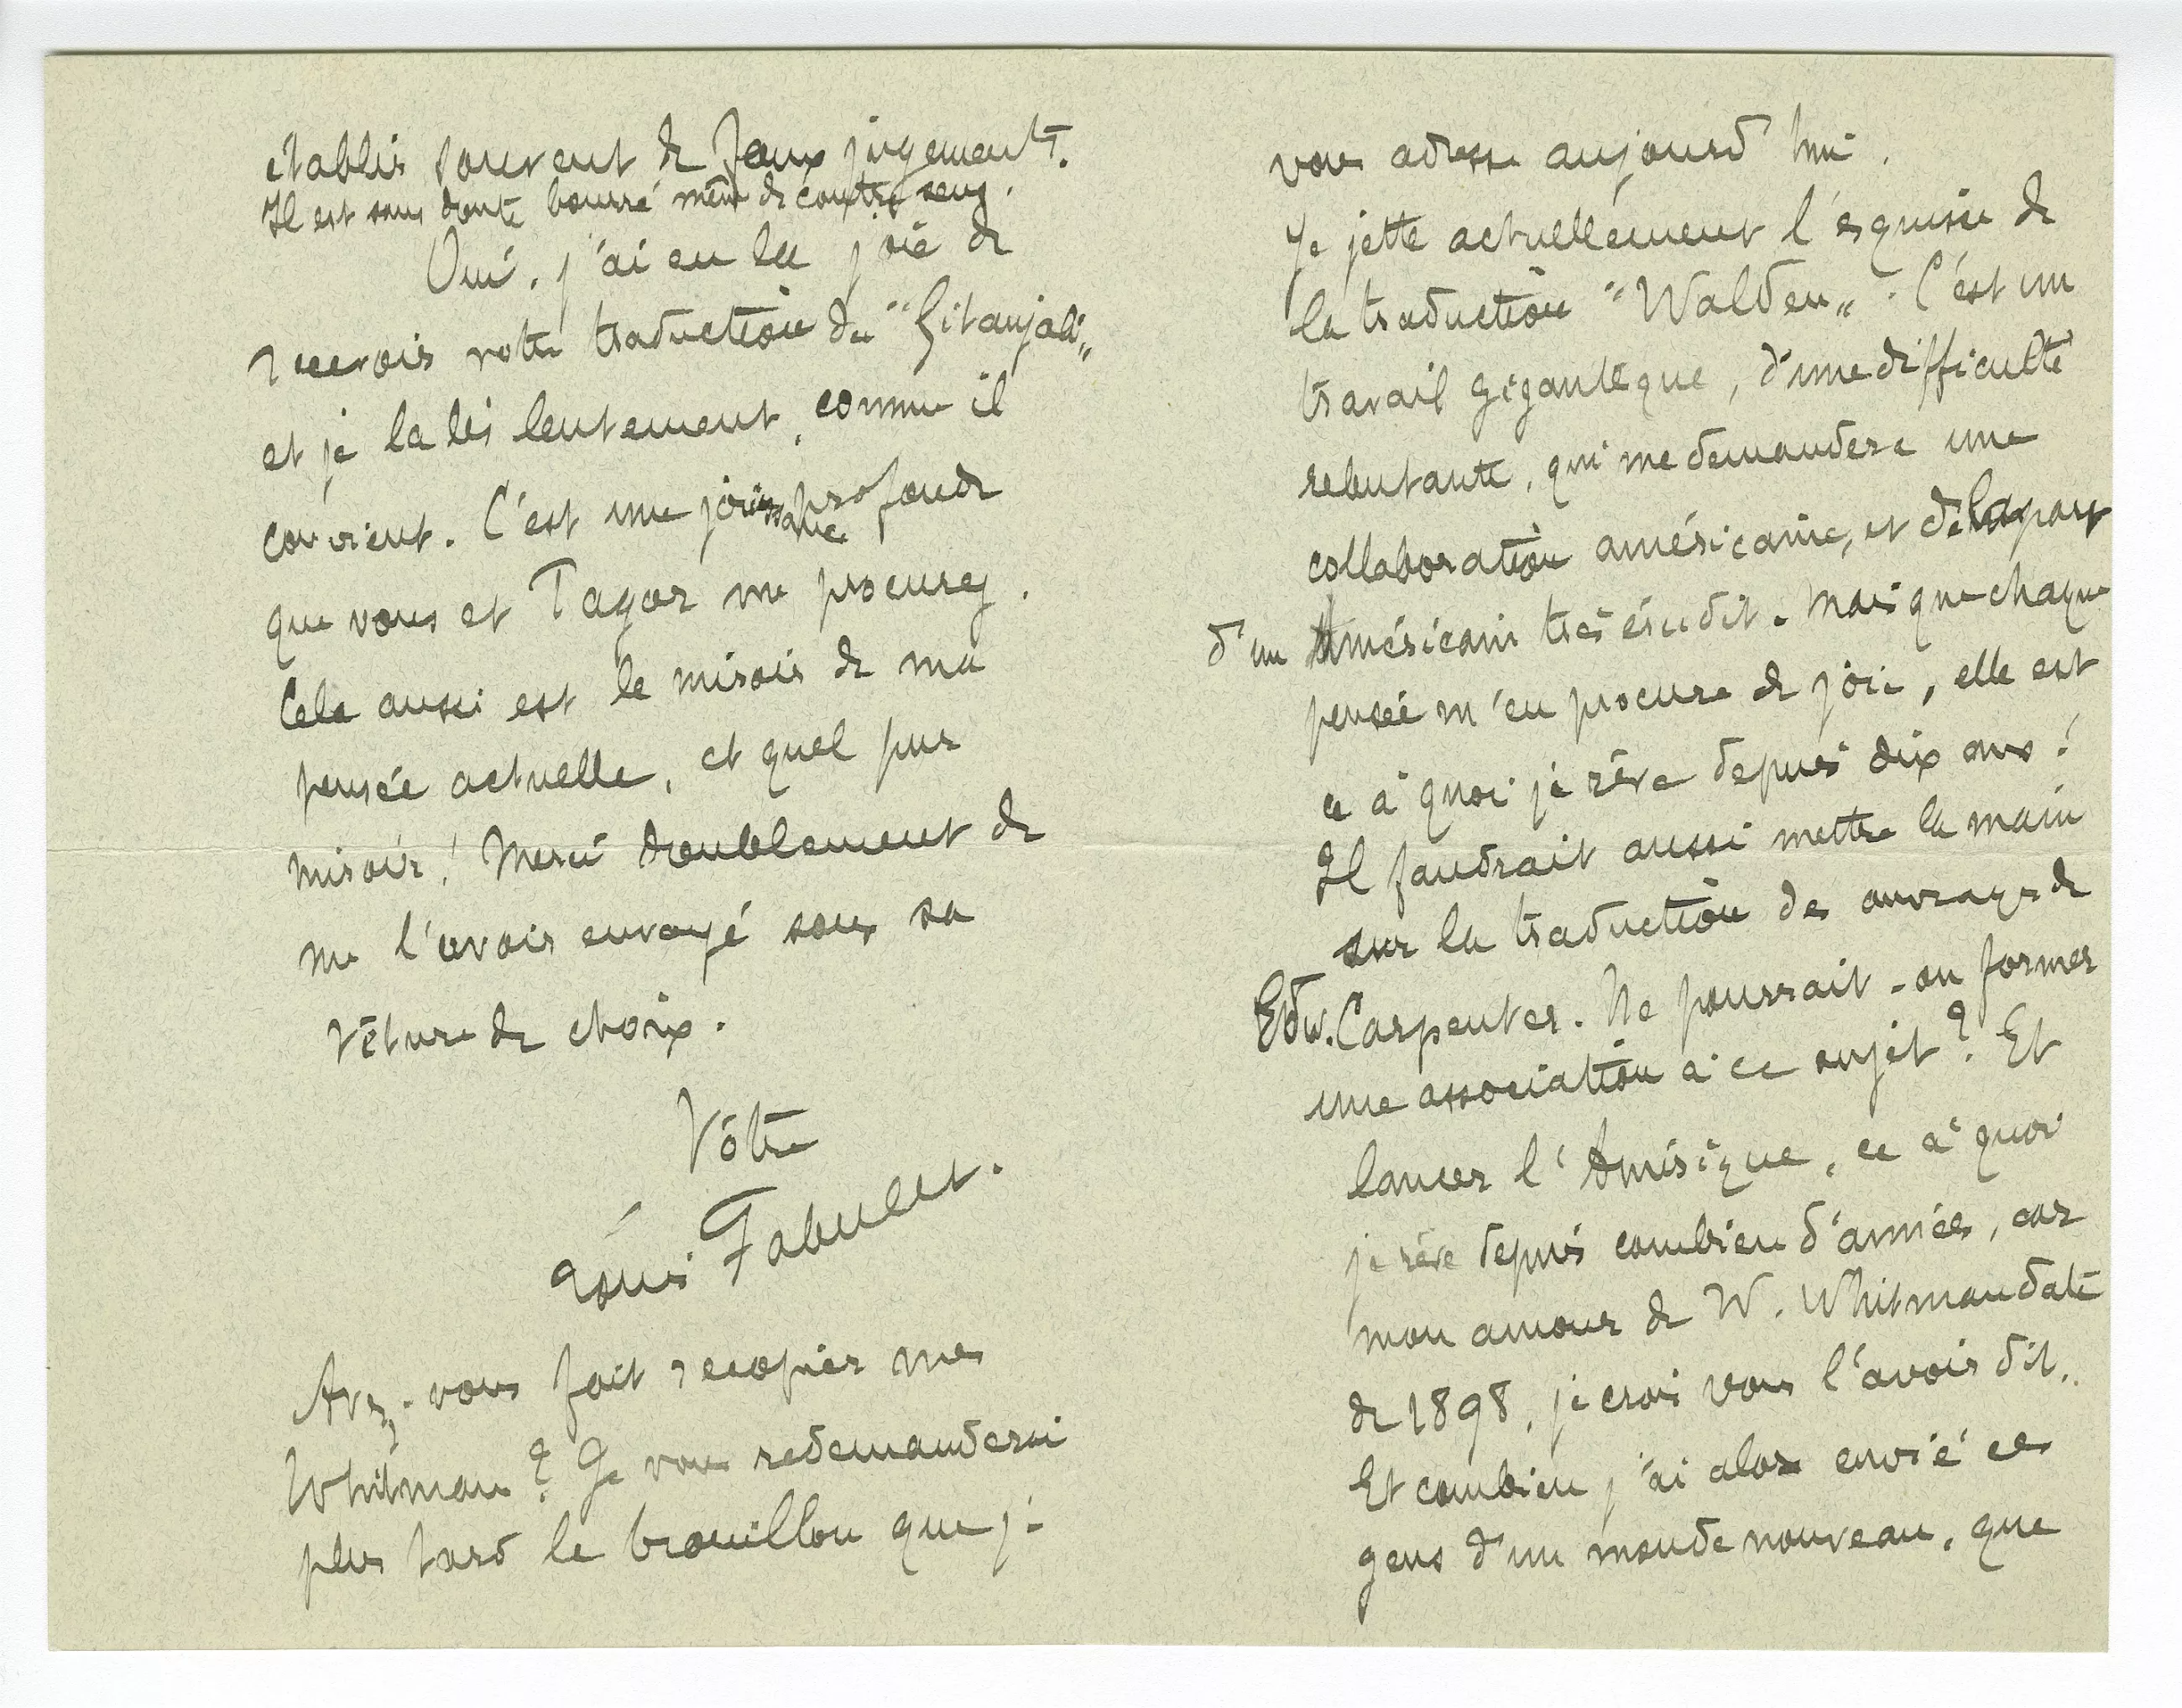 établir souvent de faux jugements.
Il est sans doute bourré même de contre sens.
Oui, j'ai eu la joie de
recevoir votre traduction du "Gitanjali"
et je la lis lentement, comme il
convient. C'est une jouissance profonde
que vous et Tagor me procurez.
Cela aussi est le miroir de ma
pensée actuelle, et quel pur
miroir! Merci doublement de
me l'avoir envoyé sous sa
vêture de choix.
Vôtre
Louis Fabulet.
Avez-vous fait recopier mes
Whitman? Je vous redemanderai
plus tard le brouillon que je
vous adresse aujourd'hui.
Je jette actuellement l'esquisse de
la traduction "Walden". C'est un
travail gigantesque, d'une difficulté
rebutante, qui me demandera une
collaboration américaine, et de la part
d'un Américain très érudit. Mais que chaque
pensée m'en procure de joie, elle est
ce à quoi je rêve depuis dix ans!
Il faudrait aussi mettre la main
sur la traduction des ouvrages de
Edw. Carpenter. Ne pourrait-on former
une association à ce sujet? Et
lancer l'Amérique, ce à quoi
je rêve depuis combien d'années, car
mon amour de W. Whitman date
de 1898, je crois vous l'avoir dit.
Et combien j'ai alors envié ces
gens d'un monde nouveau, que